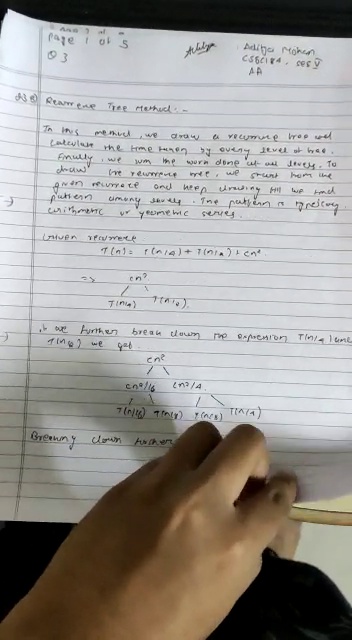 Page 1 of 5
Q 3
Aditya Mohan
CSE
Recurrence Tree Method:-
In this method, we draw a recurrence tree and
calculate the time taken by every level of tree.
Finally, we sum the work done at all levels. To
draw the recurrence tree, we start from the
given recurrence and keep drawing till we find
pattern among levels. The pattern is typically
arithmetic or geometric series.
Given recurrence
T(n) = T(n/4) + T(n/2) + cn²
=> cn²
T(n/4) T(n/2)
we further break down the expression T(n/4) and
T(n/2) we get
cn²
cn²/16 cn²/4
T(n/16) T(n/8) T(n/8) T(n/4)
Breaking down further